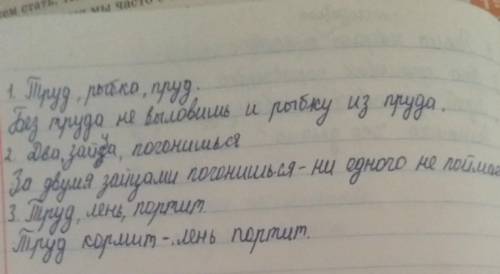 1. Труд, рыбка, пруд.
Без труда не выловишь и рыбку из пруда.
2. Два, зайца, погонишься
За двумя зайцами погонишься - ни одного не пойма
3. Труд, лень, портит.
Труд кормит - лень портит.